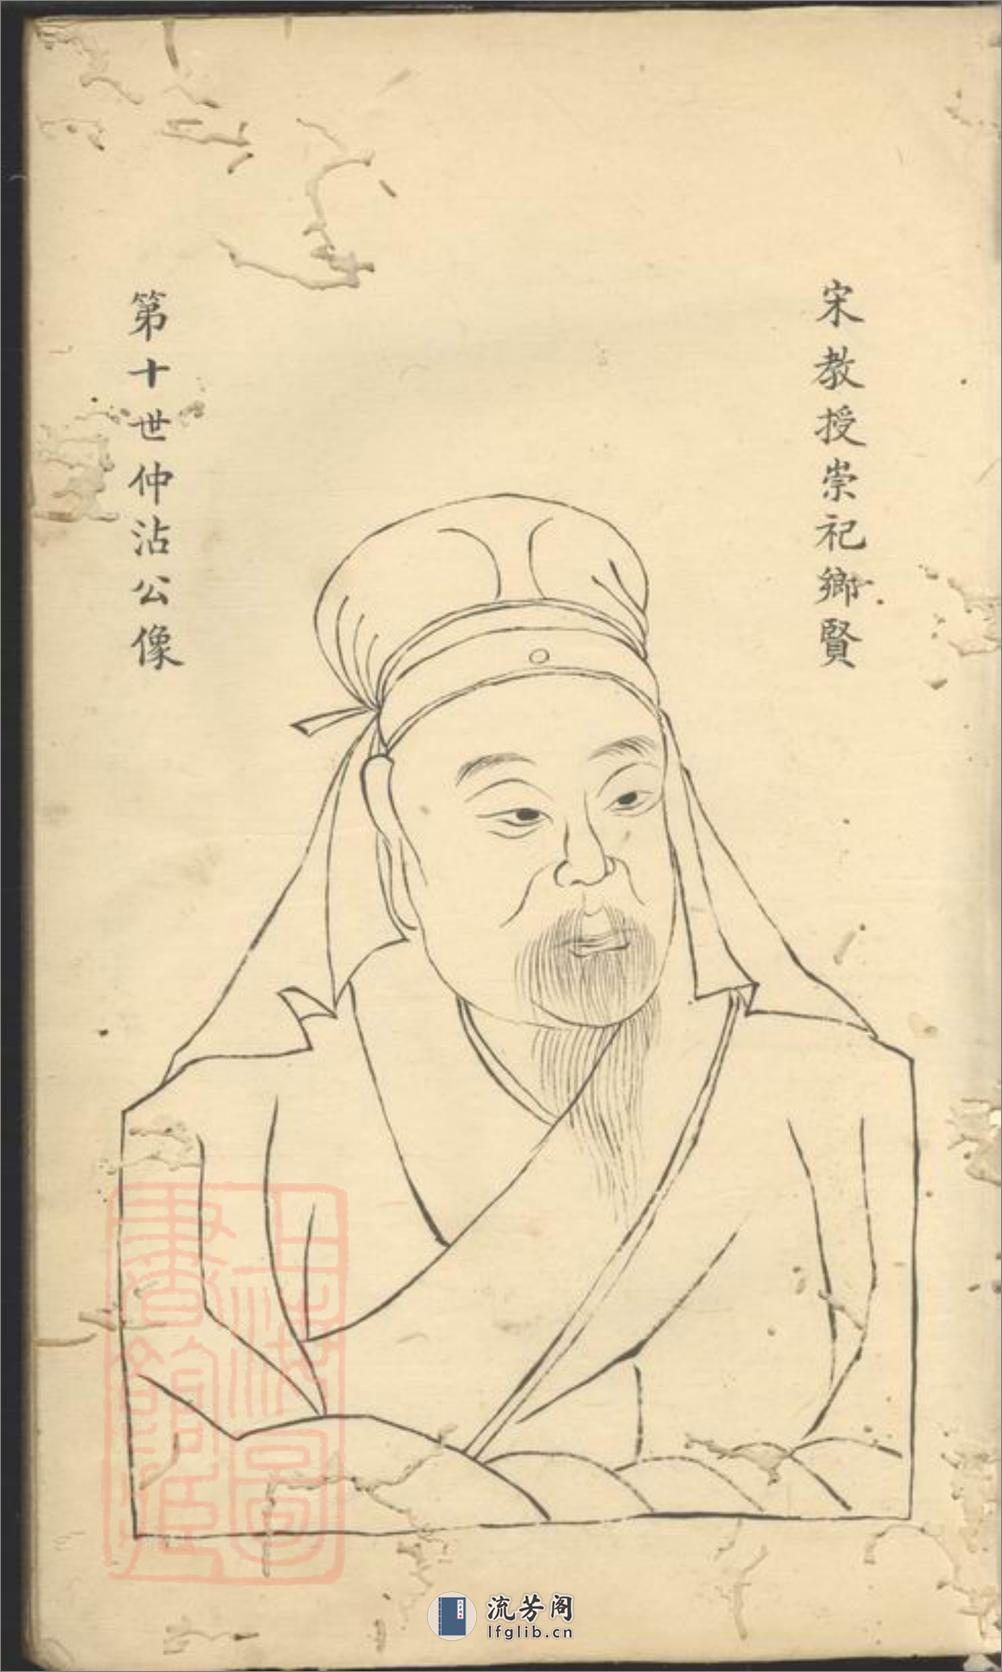 宋教授崇祀鄉賢
第十世仲沾公像
上海圖書館藏
流芳阁
lfglib.cn